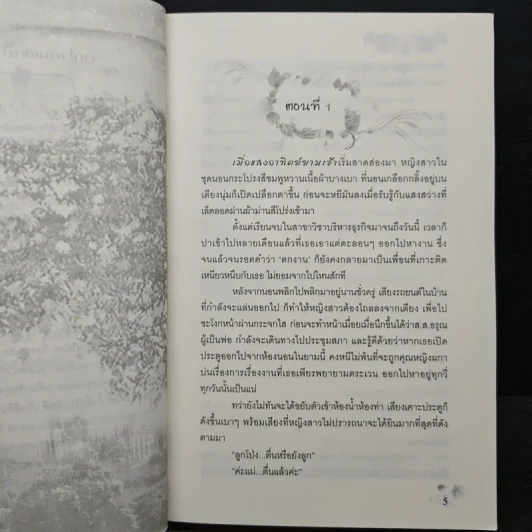 ตอนที่ 1
เมื่อแสงอาทิตย์ยามเช้าเริ่มสาดส่องมา หญิงสาวใน
ชุดนอนกระโปรงสีชมพูหวานเนื้อผ้าบางเบา ที่นอนเกลือกกลิ้งอยู่บน
เตียงนุ่มก็เปิดเปลือกตาขึ้น ก่อนจะหยีมันลงเมื่อรับรู้กับแสงสว่างที่
เล็ดลอดผ่านผ้าม่านสีโปร่งเข้ามา
ตั้งแต่เรียนจบในสาขาวิชาบริหารธุรกิจมาจนถึงวันนี้ เวลาก็
ปาเข้าไปหลายเดือนแล้วที่เธอเอาแต่ตะลอนๆ ออกไปหางาน ซึ่ง
จนแล้วจนรอดคำว่า 'ตกงาน' ก็ยังคงกลายมาเป็นเพื่อนที่เกาะติด
เหนียวหนึบกับเธอ ไม่ยอมจากไปไหนสักที
หลังจากนอนพลิกไปพลิกมาอยู่นานชั่วครู่ เสียงรถยนต์ในบ้าน
ที่กำลังจะแล่นออกไป ก็ทำให้หญิงสาวต้องไถลลงจากเตียง เพื่อไป
ชะโงกหน้าผ่านกระจกใส ก่อนจะทำหน้าเมื่อยเมื่อนึกขึ้นได้ว่าส.ส.อรุณ
ผู้เป็นพ่อ กำลังจะเดินทางไปประชุมสภา และรู้ดีด้วยว่าหากเธอเปิด
ประตูออกไปจากห้องนอนในยามนี้ คงหนีไม่พ้นที่จะถูกคุณหญิงผกา
บ่นเรื่องการเรื่องงานที่เธอเพียรพยายามตระเวน ออกไปหาอยู่ทุกวี่
ทุกวันนั้นเป็นแน่
ทว่ายังไม่ทันจะได้ขยับตัวเข้าห้องน้ำห้องท่า เสียงเคาะประตูก็
ดังขึ้นเบาๆ พร้อมเสียงที่หญิงสาวไม่ปรารถนาจะได้ยินมากที่สุดที่ดัง
ตามมา
"ลูกโป่ง...ตื่นหรือยังลูก"
"ค่ะแม่...ตื่นแล้วค่ะ"
5